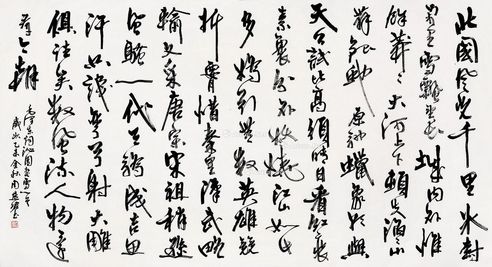 北國風光千里冰封
萬里雪飄望長城內外惟
餘莽莽大河上下頓失滔滔山
舞銀蛇原馳蠟象欲與
天公試比高須晴日看紅裝
素裹分外妖嬈江山如此
多嬌引無數英雄競
折腰惜秦皇漢武略
輸文采唐宗宋祖稍遜
風騷一代天驕成吉思
汗只識彎弓射大雕
俱往矣數風流人物還
看今朝
毛澤東詞沁園春雪
歲次乙未金秋周